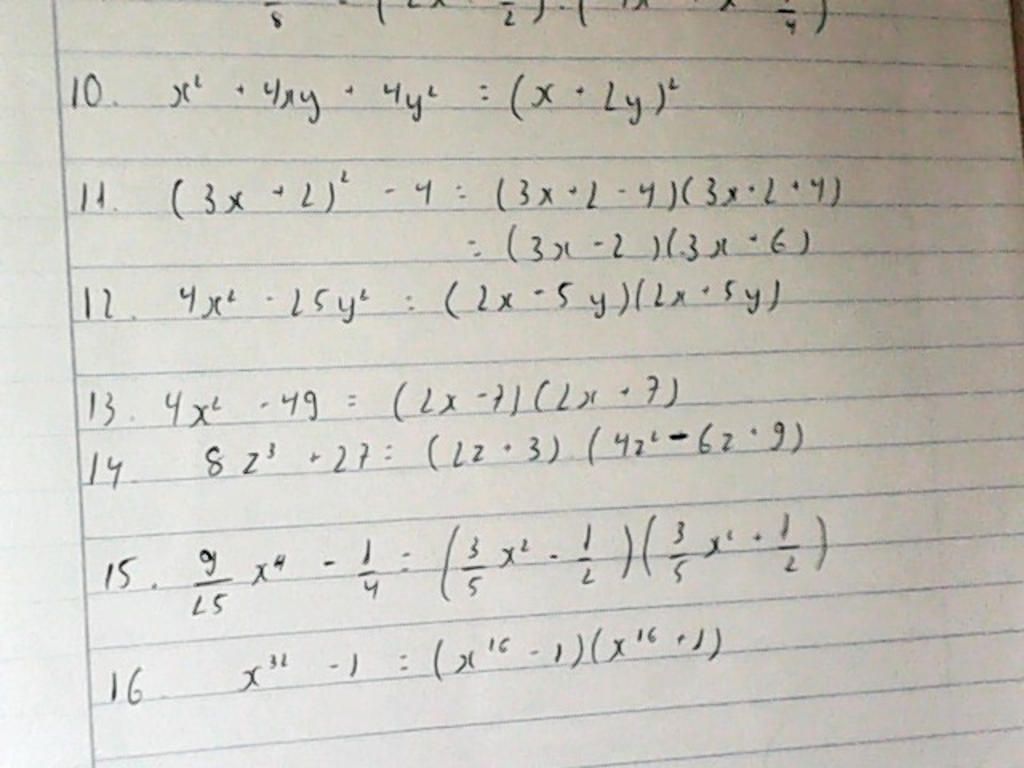 10. x² + 4xy + 4y² = (x + 2y)²
11. (3x + 2)² - 4 = (3x + 2 - 4)(3x + 2 + 4)
= (3x - 2)(3x + 6)
12. 4x² - 25y² = (2x - 5y)(2x + 5y)
13. 4x² - 49 = (2x - 7)(2x + 7)
14 8z³ + 27 = (2z + 3) (4z² - 6z + 9)
15. 9/25 x⁴ - 1/4 = (3/5 x² - 1/2)(3/5 x² + 1/2)
16 x³² - 1 = (x¹⁶ - 1)(x¹⁶ + 1)